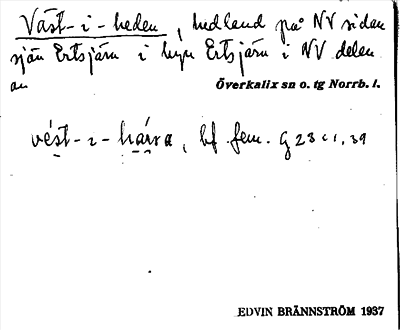 Väst-i-heden, hedland på NV sidan
sjön Ertsjärn i byn Ertsjärn i NV delen
av
Överkalix sn o. tg Norrb. l.
vést-ı-hárra, bf. fem. G 23 c 1, 39
EDVIN BRÄNNSTRÖM 1937